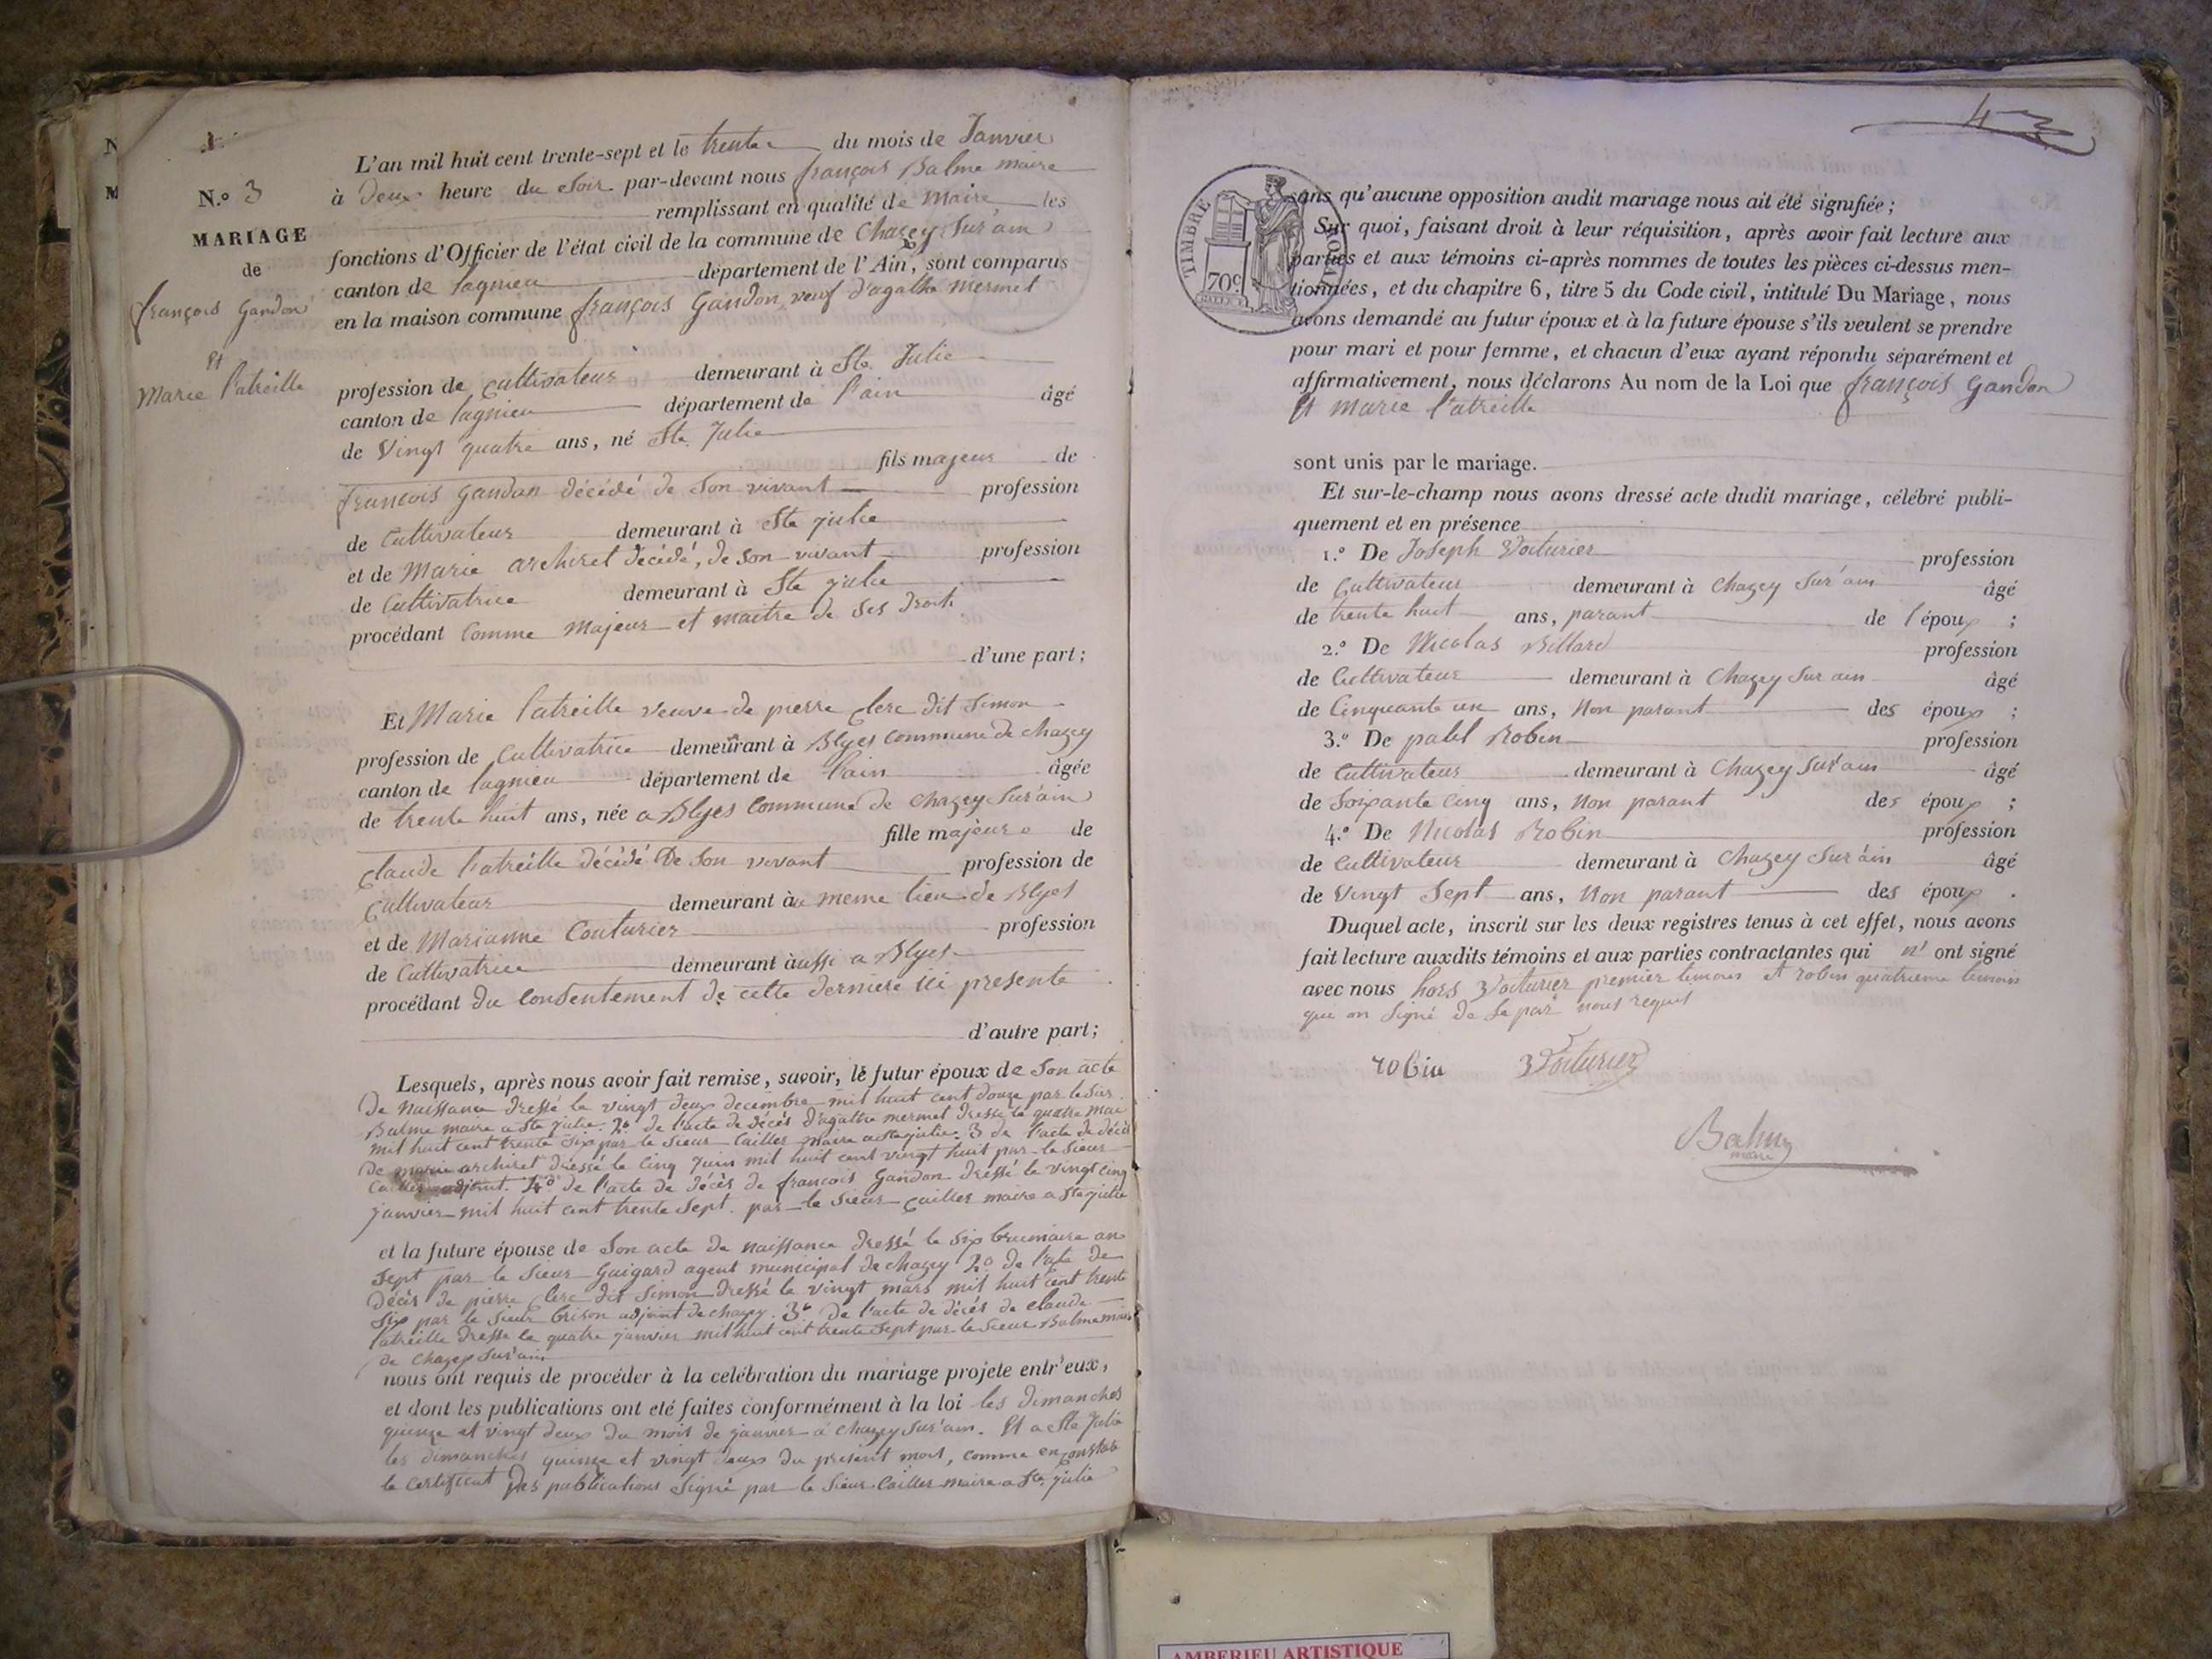 N.º 3
MARIAGE
de
françois Gandon
Et
Marie latreille
L'an mil huit cent trente-sept et le trente du mois de Janvier
à Deux heure du Soir par-devant nous françois Balme maire
remplissant en qualité de Maire les
fonctions d'Officier de l'état civil de la commune de Chazey Sur ain
canton de lagnieu département de l'Ain, sont comparus
en la maison commune françois Gandon, veuf d'agathe mermet
profession de Cultivateur demeurant à Ste Julie
canton de lagnieu département de l'ain âgé
de Vingt quatre ans, né Ste Julie
fils majeur de
francois gandon décédé de son vivant profession
de Cultivateur demeurant à Ste julie
et de Marie archiret décédé, de son vivant profession
de Cultivatrice demeurant à Ste julie
procédant Comme Majeur et maitre de ses droits
d'une part;
Et Marie latreille veuve de pierre Clerc dit Simon
profession de Cultivatrice demeurant à Blyes commune de Chazey
canton de lagnieu département de l'ain âgée
de trente huit ans, née a Blyes Commune de Chazey Sur ain
fille majeure de
Claude latreille décédé De Son vivant profession de
Cultivateur demeurant àu meme lieu de Blyes
et de Marianne Couturier profession
de Cultivatrice demeurant àussi a Blyes
procédant du Consentement de cette derniere ici presente
d'autre part;
Lesquels, après nous avoir fait remise, savoir, le futur époux de Son acte
De Naissance dressé le vingt deux decembre mil huit cent douze par le Sieur
Balme maire a Ste julie. 2º de l'acte de décès d'agathe mermet dressé le quatre mai
mil huit cent trente Six par le Sieur Cailler maire a Ste julie. 3 de l'acte de décès
De marie archiret dressé le Cinq Juin mil huit cent vingt huit par le Sieur
Cailler adjoint. 4º de l'acte de décès de françois Gandon dressé le vingt cinq
janvier mil huit cent trente Sept. par le Sieur Cailler maire a Ste julie
et la future épouse de Son acte de naissance dressé le Six brumaire an
Sept par le Sieur Guigard agent municipal de Chazey 2º de l'acte de
Décès de pierre Clerc dit Simon dressé le vingt mars mil huit cent trente
Six par le Sieur brison adjoint de chazey. 3º De l'acte de décès de claude
latreille dressé le quatre janvier mil huit cent trente Sept par le Sieur Balme maire
de Chazey Sur ain
nous ont requis de procéder à la celébration du mariage projete entr'eux,
et dont les publications ont eté faites conformément à la loi les dimanches
quinze et vingt deux du mois de janvier a Chazey Sur ain. Et a Ste Julie
les dimanches quinze et vingt deux du présent mois, comme en Constate
le certificat des publications Signé par le Sieur Cailler maire a Ste julie
TIMBRE ROYAL
70c
sans qu'aucune opposition audit mariage nous ait été signifiée;
Sur quoi, faisant droit à leur réquisition, après avoir fait lecture aux
parties et aux témoins ci-après nommes de toutes les pièces ci-dessus men-
tionnées, et du chapitre 6, titre 5 du Code civil, intitulé Du Mariage, nous
avons demandé au futur époux et à la future épouse s'ils veulent se prendre
pour mari et pour femme, et chacun d'eux ayant répondu séparément et
affirmativement, nous déclarons Au nom de la Loi que françois Gandon
Et Marie latreille
sont unis par le mariage.
Et sur-le-champ nous avons dressé acte dudit mariage, célébré publi-
quement et en présence
1.º De Joseph Voiturier profession
de Cultivateur demeurant à Chazey Sur ain âgé
de trente huit ans, parant de l'époux ;
2.º De Nicolas Billard profession
de Cultivateur demeurant à Chazey Sur ain âgé
de Cinquante un ans, Non parant des époux ;
3.º De Robin profession
de Cultivateur demeurant à Chazey Sur ain âgé
de Soixante Cinq ans, Non parant des époux ;
4.º De Nicolas Robin profession
de Cultivateur demeurant à Chazey Sur ain âgé
de Vingt Sept ans, Non parant des époux .
Duquel acte, inscrit sur les deux registres tenus à cet effet, nous avons
fait lecture auxdits témoins et aux parties contractantes qui n' ont signé
avec nous hors Voiturier premier temoin Et robin quatrieme temoin
que on Signé de Se par nous requis
robin Voiturier
Balme
maire
AMBERIEU ARTISTIQUE